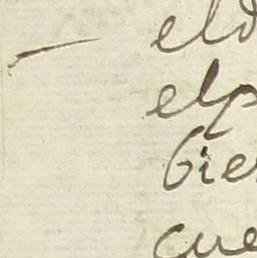 eld
elp
bie
cue